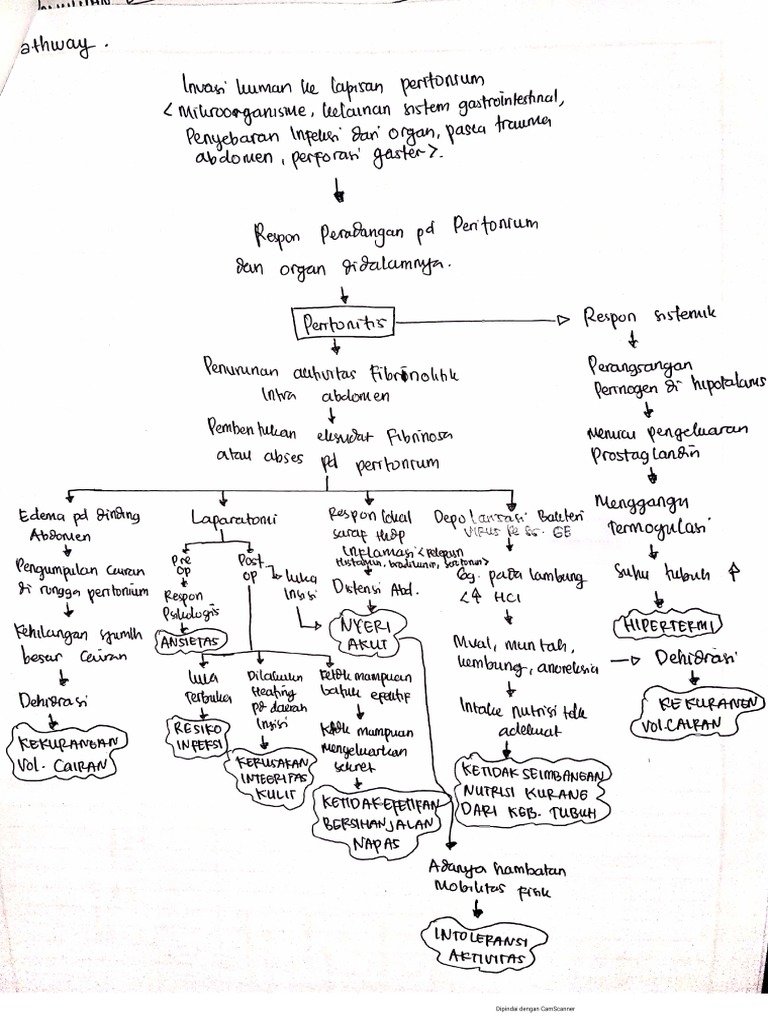 athway.
Invasi kuman ke lapisan peritonium
< Mikroorganisme, kelainan sistem gastrointestinal,
Penyebaran Infeksi dari organ, pasca trauma
abdomen, perforasi gaster >.
Respon Peradangan pd Peritonium
dan organ didalamnya.
Peritonitis
Respon sistemik
Penurunan aktivitas Fibrinolitik
Intra abdomen
Pembentukan eksudat Fibrinosa
atau abses pd peritonium
Perangsangan
Permogen di hipotalamus
Memicu pengeluaran
Prostaglandin
Menggangu
Termogulasi
Suhu tubuh ↑
HIPERTERMI
Dehidrasi
KEKURANGN
VOL.CAIRAN
Edema pd dinding
Abdomen
Pengumpulan cairan
di rongga peritonium
Kehilangan sjumlh
besar cairan
Dehidrasi
KEKURANGAN
VOL. CAIRAN
Laparatomi
Pre
Op
Respon
Psikologis
ANSIETAS
Post
op
luka
Insisi
luka
Terbuka
RESIKO
INFEKSI
Dilakukan
Heating
pd daerah
Insisi
KERUSAKAN
INTEGRITAS
KULIT
Ketdk mampuan
batuk efektif
Ktdk mampuan
mengeluarkan
sekret
KETIDAKEFEKTIFAN
BERSIHAN JALAN
NAPAS
Respon lokal
saraf thdp
Inflamasi <
Histamin, bradikinin, serotonin>
Distensi Abd.
NYERI
AKUT
Bakteri
GE
Gg. pada lambung
<↑ HCl
Mual, muntah,
kembung, anoreksia
Intake nutrisi tdk
adekuat
KETIDAK SEIMBANGAN
NUTRISI KURANG
DARI KEB. TUBUH
Adanya hambatan
Mobilitas fisik
INTOLERANSI
AKTIVITAS
Dipindai dengan CamScanner